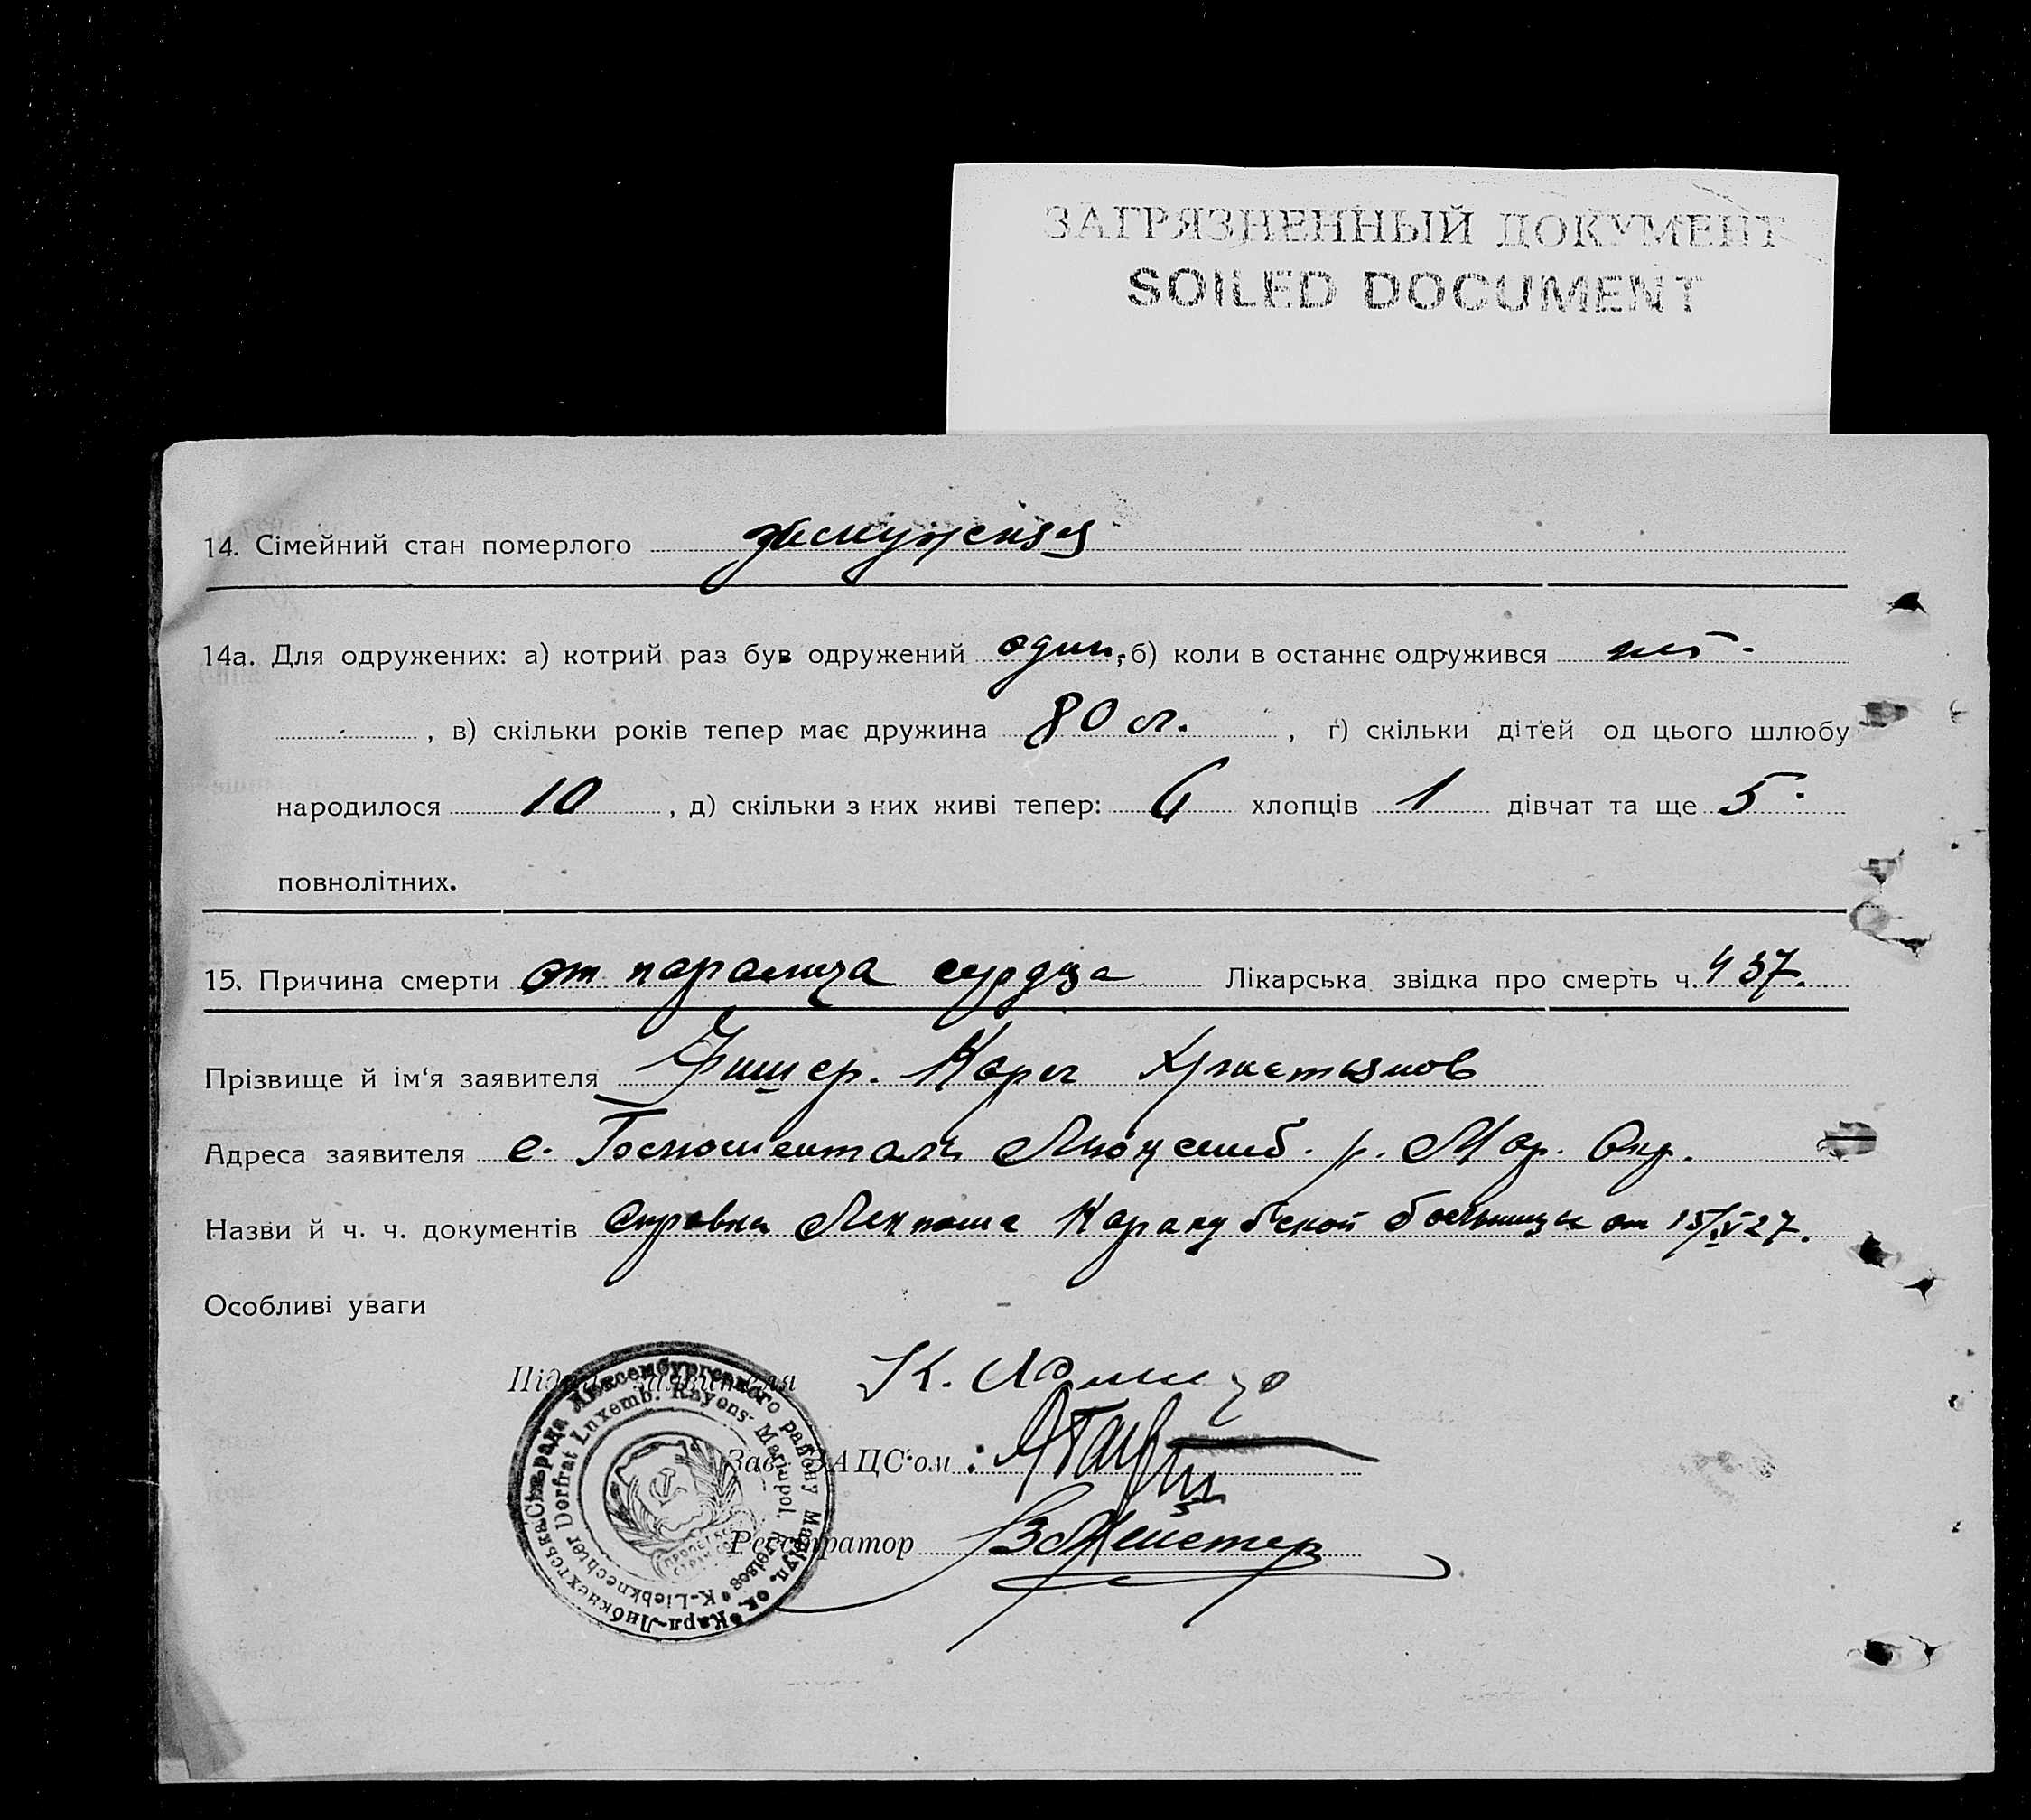 ЗАГРЯЗНЕННЫЙ ДОКУМЕНТ
SOILED DOCUMENT
14. Сімейний стан померлого
14а. Для одружених: а) котрий раз був одружений один, б) коли в останнє одружився
, в) скільки років тепер має дружина 80 л. , ґ) скільки дітей од цього шлюбу
народилося 10 , д) скільки з них живі тепер: 6 хлопців 1 дівчат та ще 5
повнолітних.
15. Причина смерти от паралича сердца Лікарська звідка про смерть ч. 437.
Прізвище й ім‘я заявителя Фишер. Карл Християнов
Адреса заявителя с. Люксемб. р. Мар. Окр.
Назви й ч. ч. документів Справка Каракубской больницы от 15/V 27.
Особливі уваги
Підпис заявителя К.
Зав. ЗАЦС‘ом
Реєстратор Мейстер
Карл-Либкнехтська Сільрада Люксембургского району Маріуп. ок.
K-Liebknechter Dorfrat Luxemb. Rayons Mariupol. Kreises